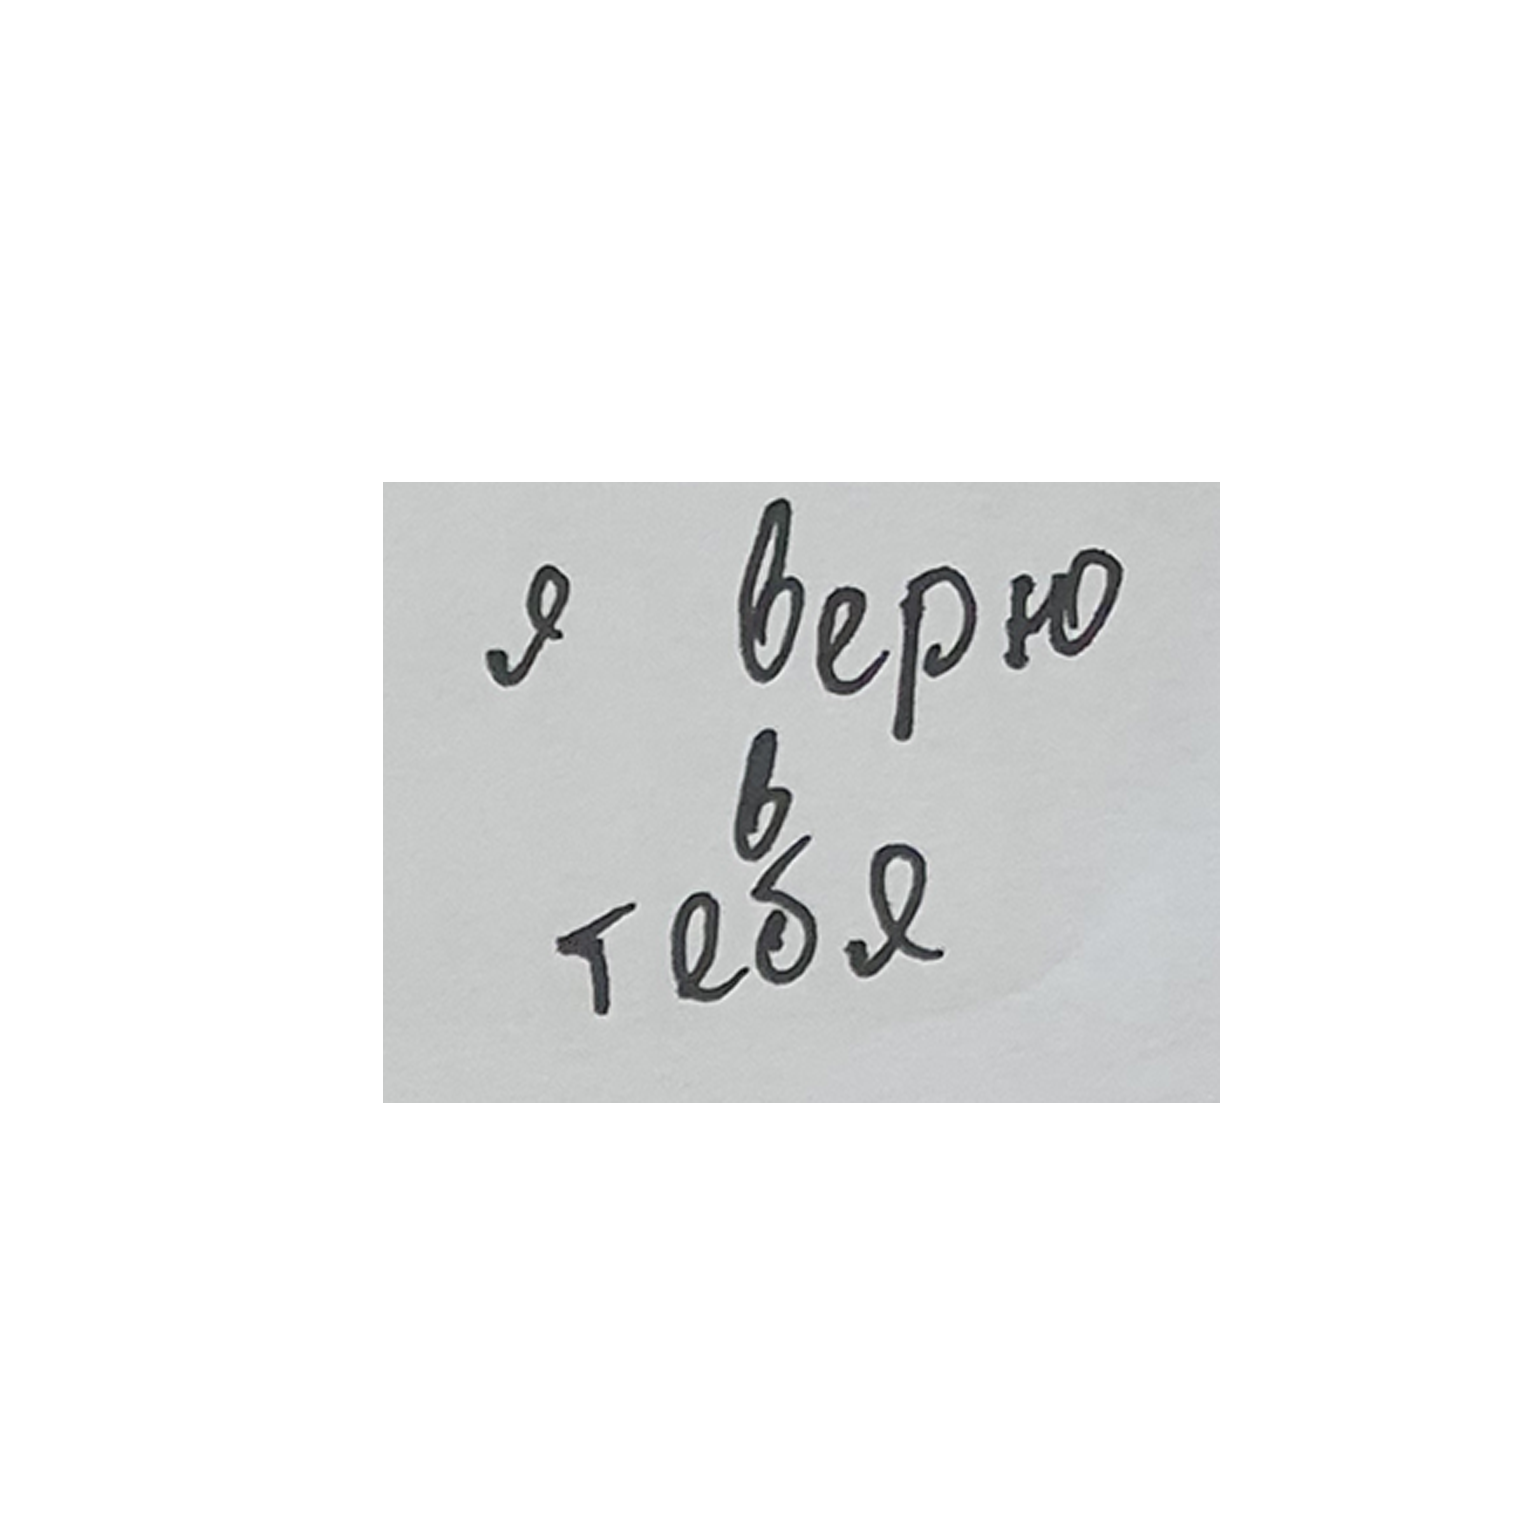 я верю
в
тебя